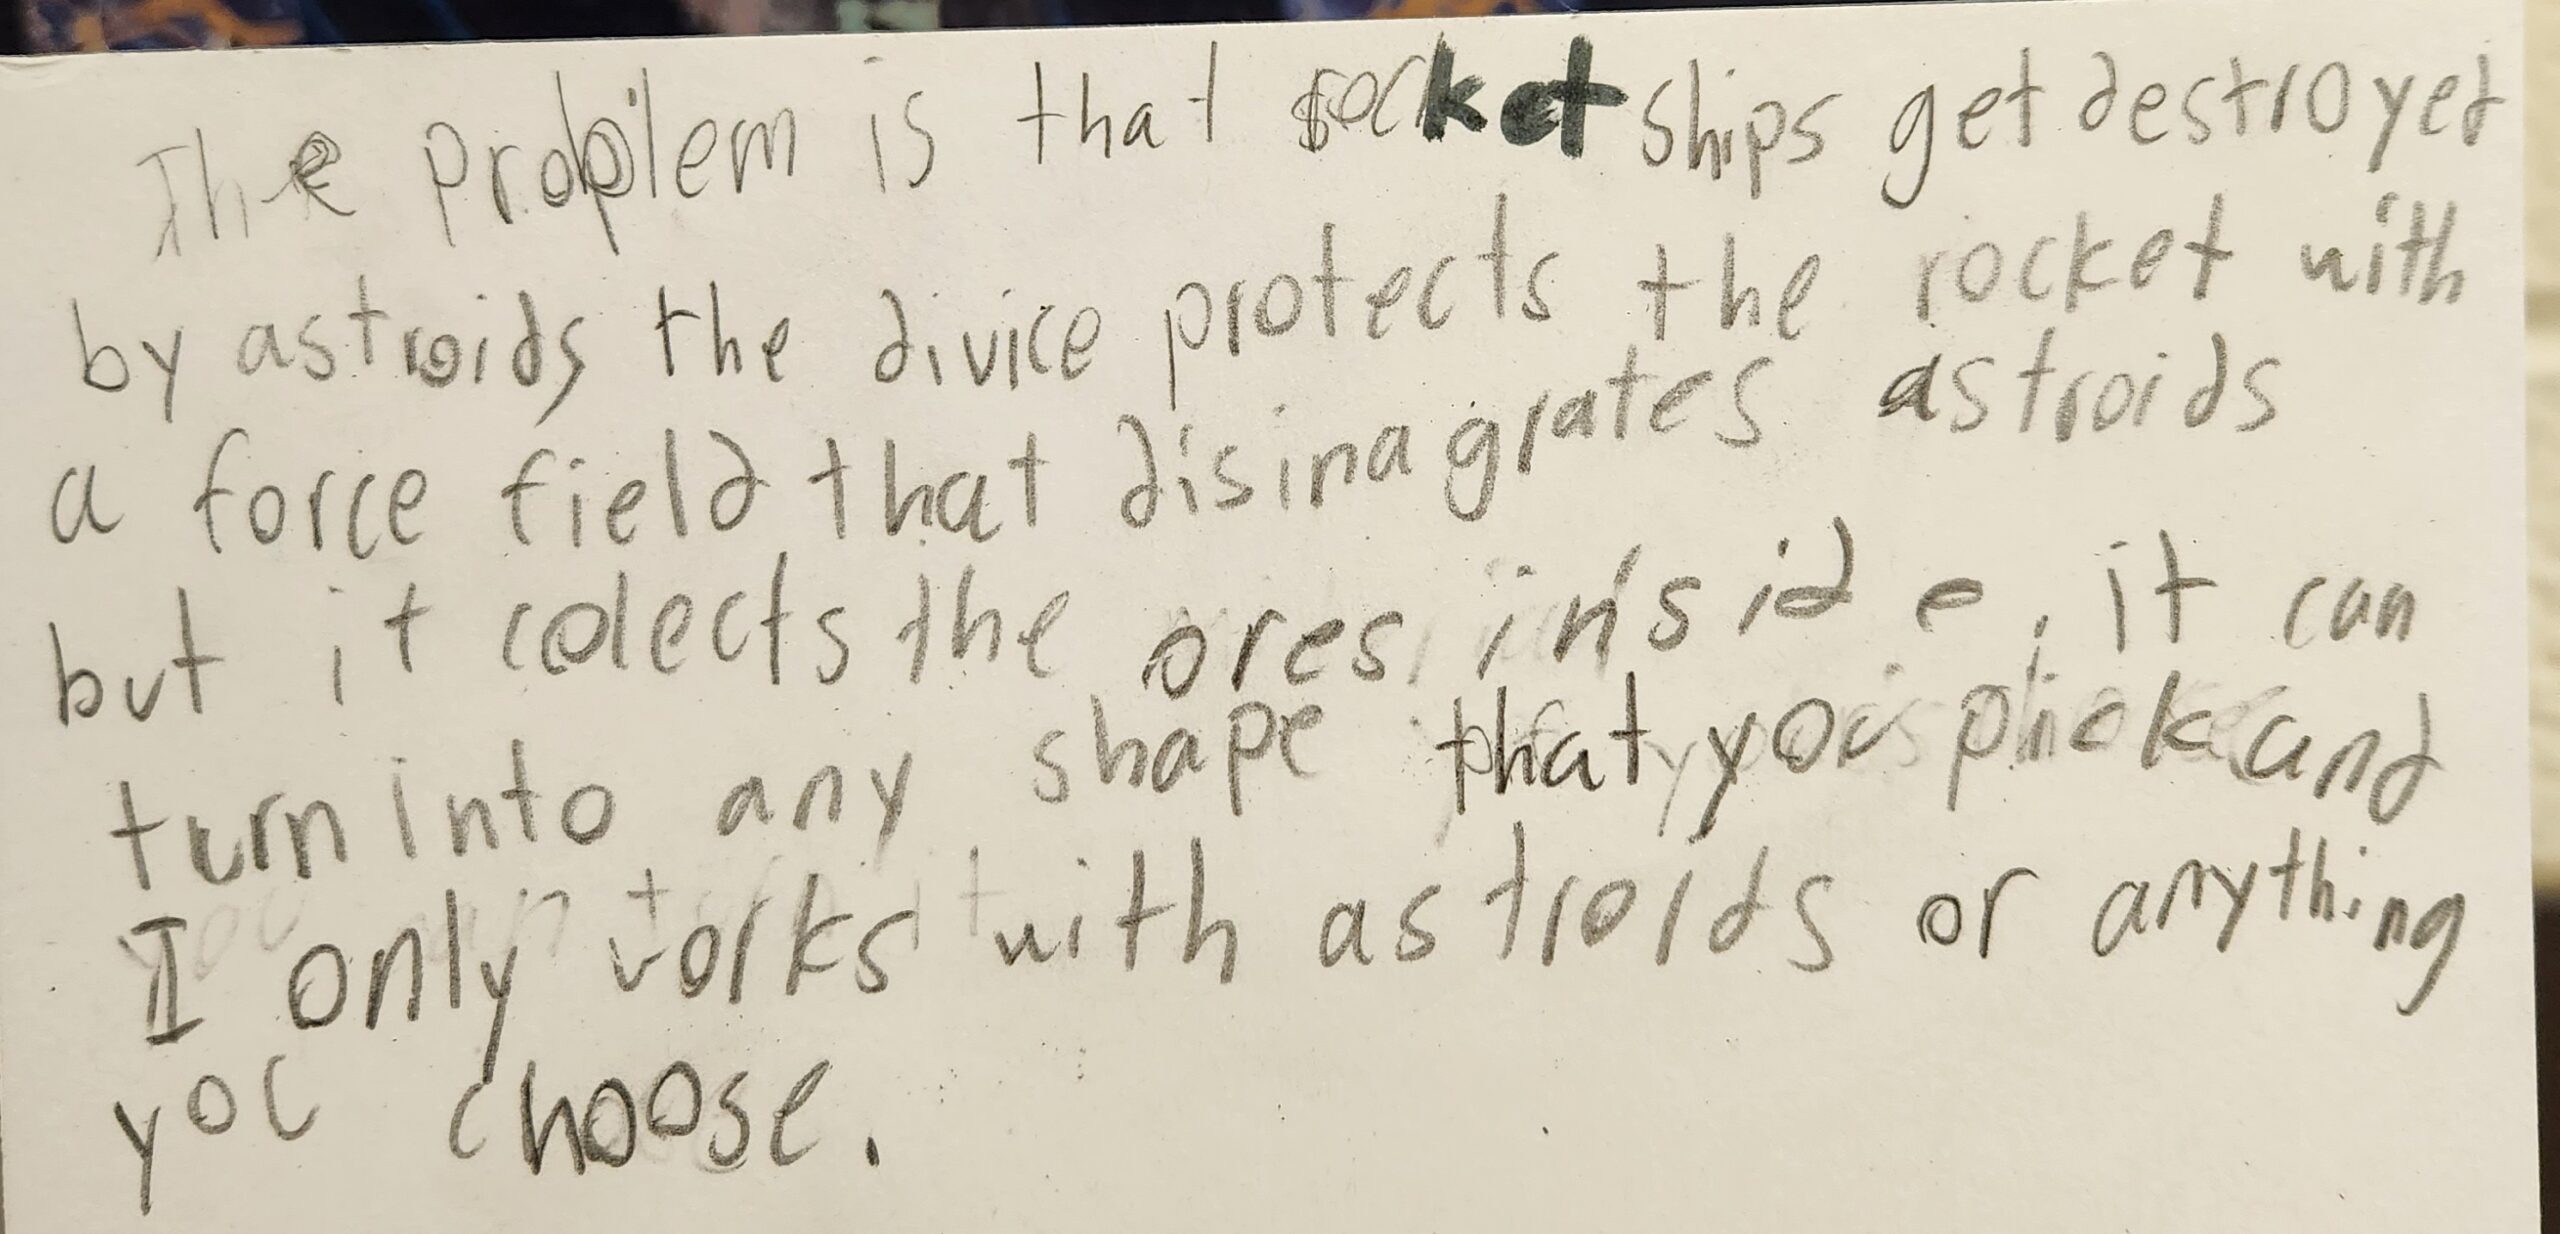 The problem is that rocket ships get destroyed
by astroids the divice protects the rocket with
a force field that disinagrates astroids
but it colects the ores inside, it can
turn into any shape that you pick and
I only works with astroids or anything
you choose.